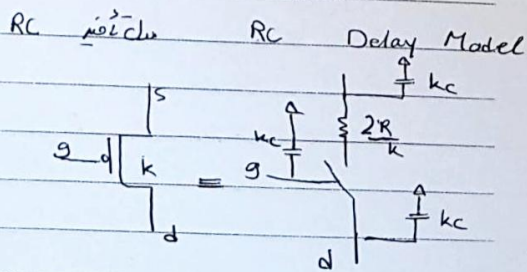 RC مدل تأخیر RC Delay Model
s kc
g k = kc g 2R/k
kc
d d